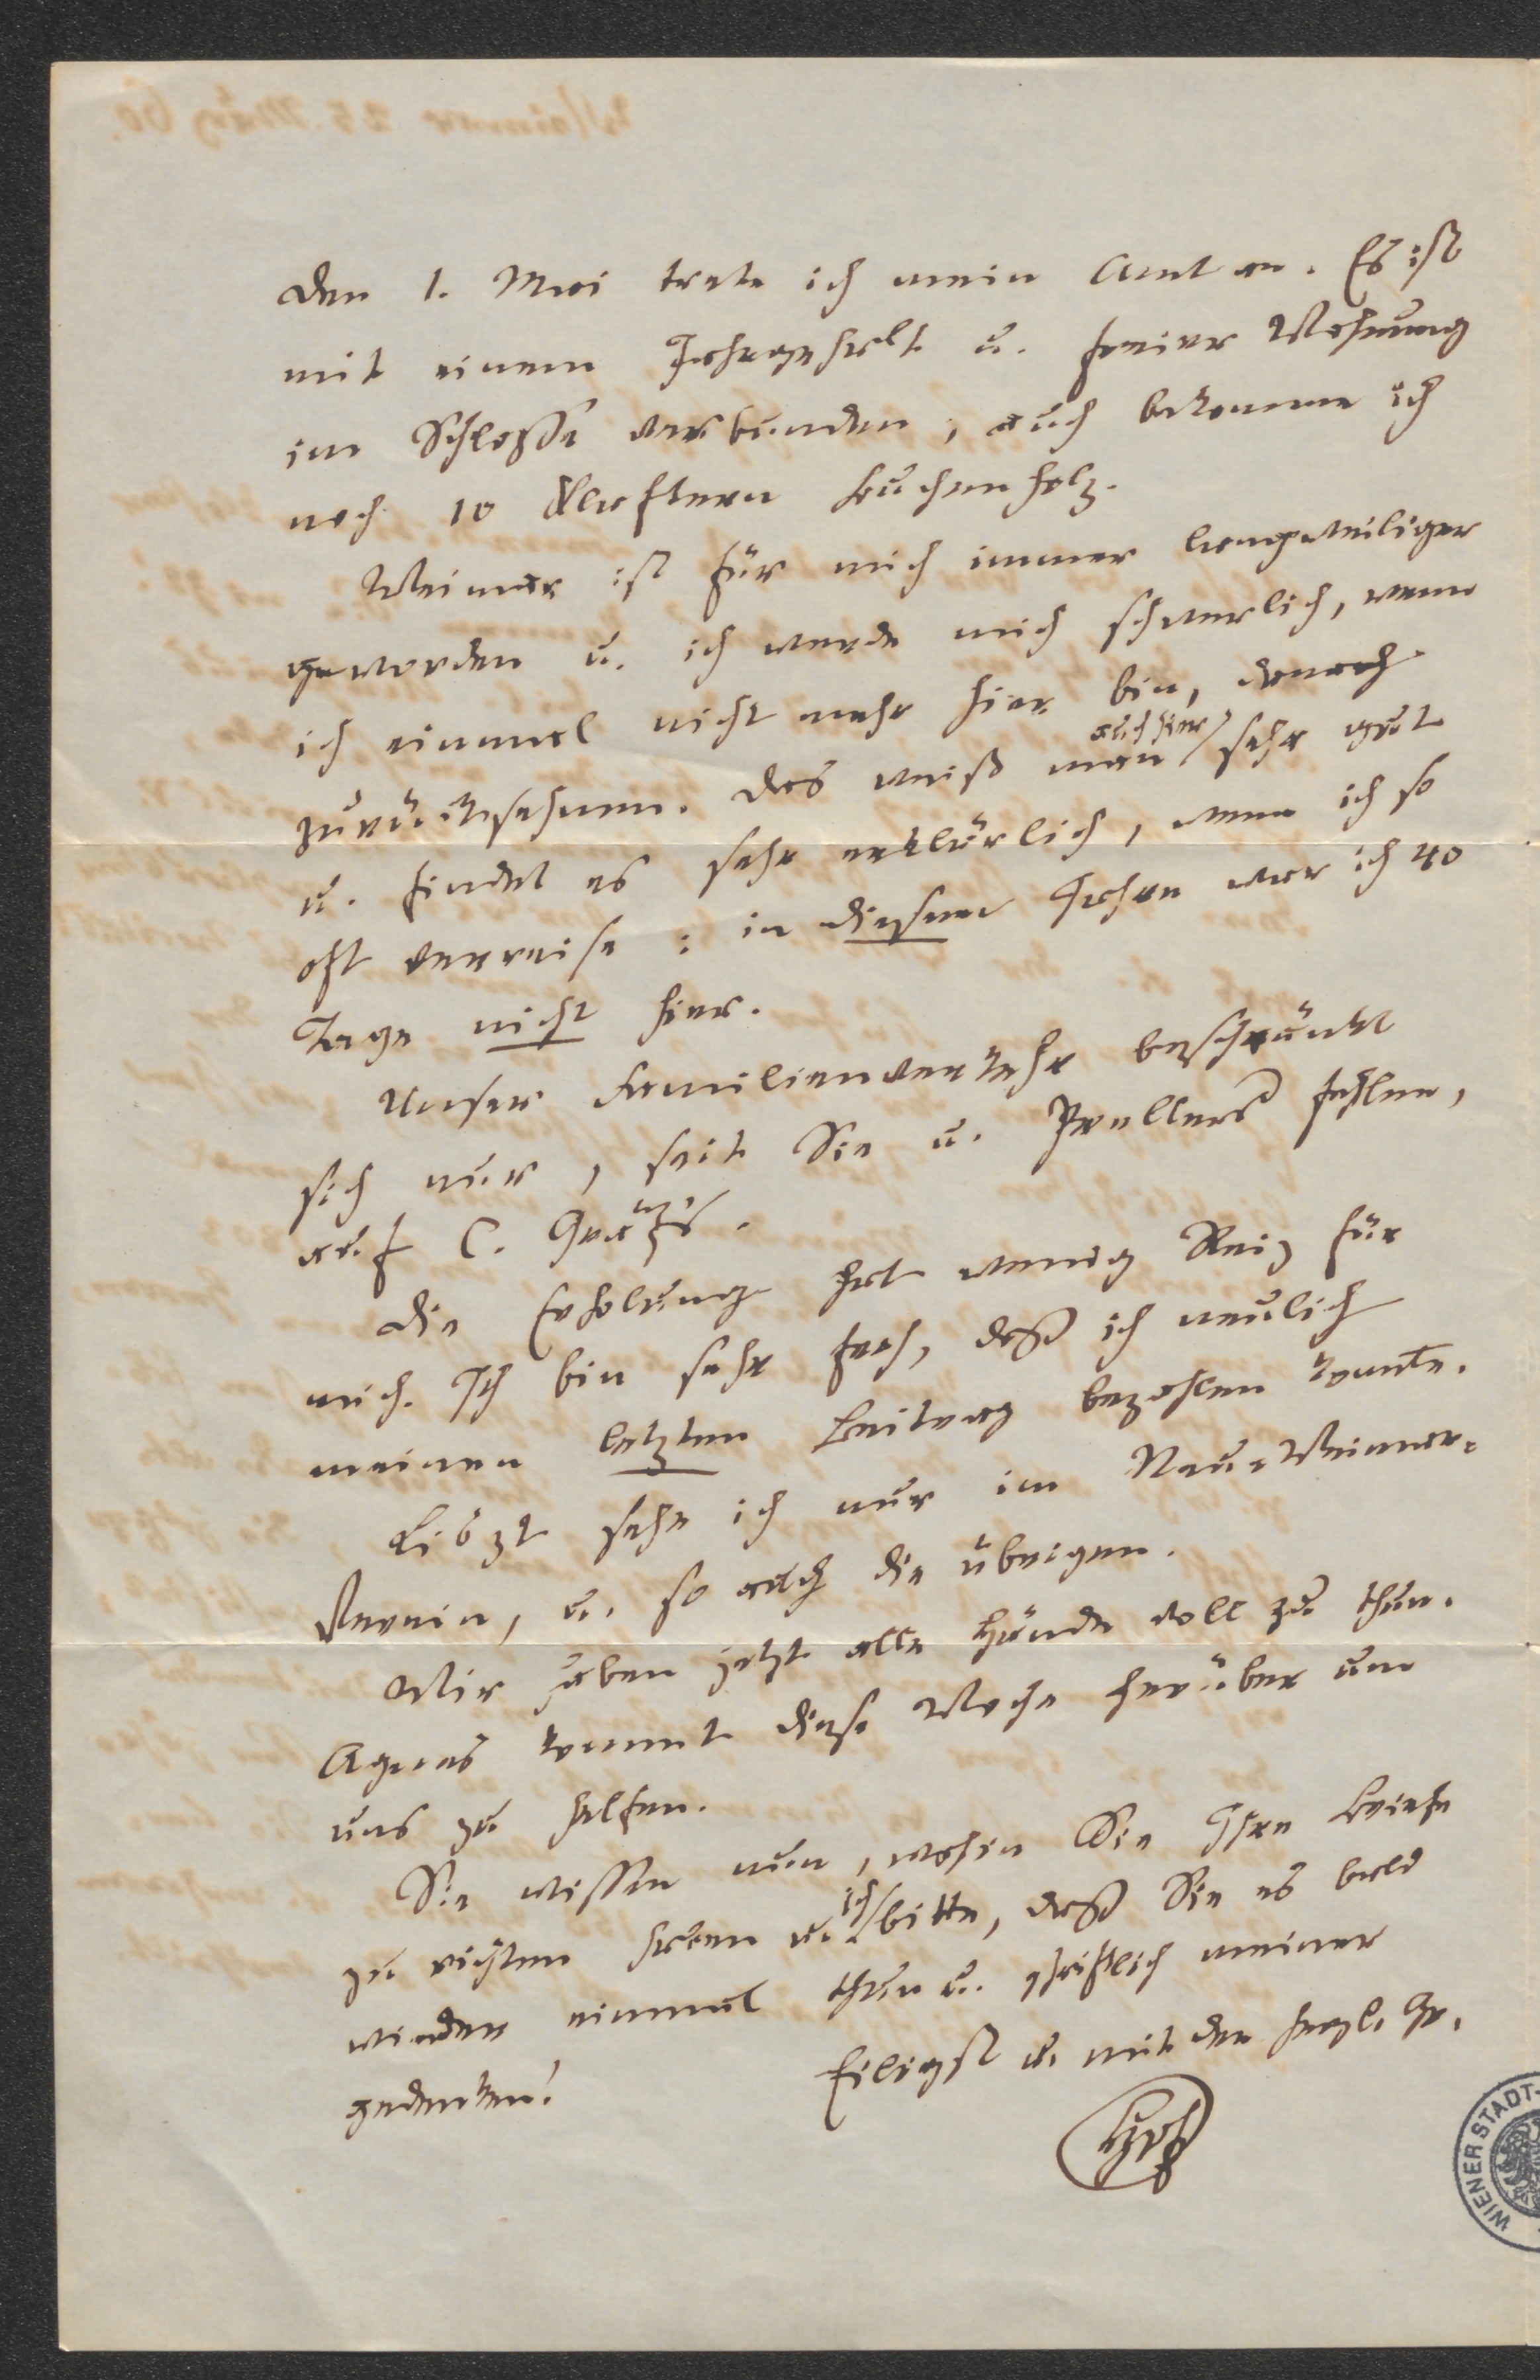 den 1. Mai trete ich mein Amt an. Es ist
mit einem Jahrgehalt u. freier Wohnung
im Schloße verbunden, auch bekomme ich
noch 10 Klaftern Buchenholz.
Weimar ist für mich immer langweiliger
geworden u. ich werde mich schwerlich, wenn
ich einmal nicht mehr hier bin, danach
zurücksehnen. Das weiß man auch hier sehr gut
u. findet es sehr erklärlich, wenn ich so
oft verreise: in diesem Jahre war ich 40
Tage nicht hier.
Unser Familienverkehr beschränkt
sich nur, seit Sie u. Prellers fehlen,
auf C.
Die Erholung hat wenig Reiz für
mich. Ich bin sehr froh, daß ich neulich
meinen letzten Beitrag bezahlen konnte.
Liszt sehe ich nur im Neu-Weimar-
Verein, u. so auch die übrigen.
Wir haben jetzt alle Hände voll zu thun.
Agnes kommt diese Woche herüber um
uns zu helfen.
Sie wissen nun, wohin Sie Ihre Briefe
zu richten haben u. ich bitte, daß Sie es bald
wieder einmal thun u. schriftlich meiner
gedenken!
Eiligst u. mit den herzl. Gr.
HvF
WIENER STADT-
Weimar 25. März 60.